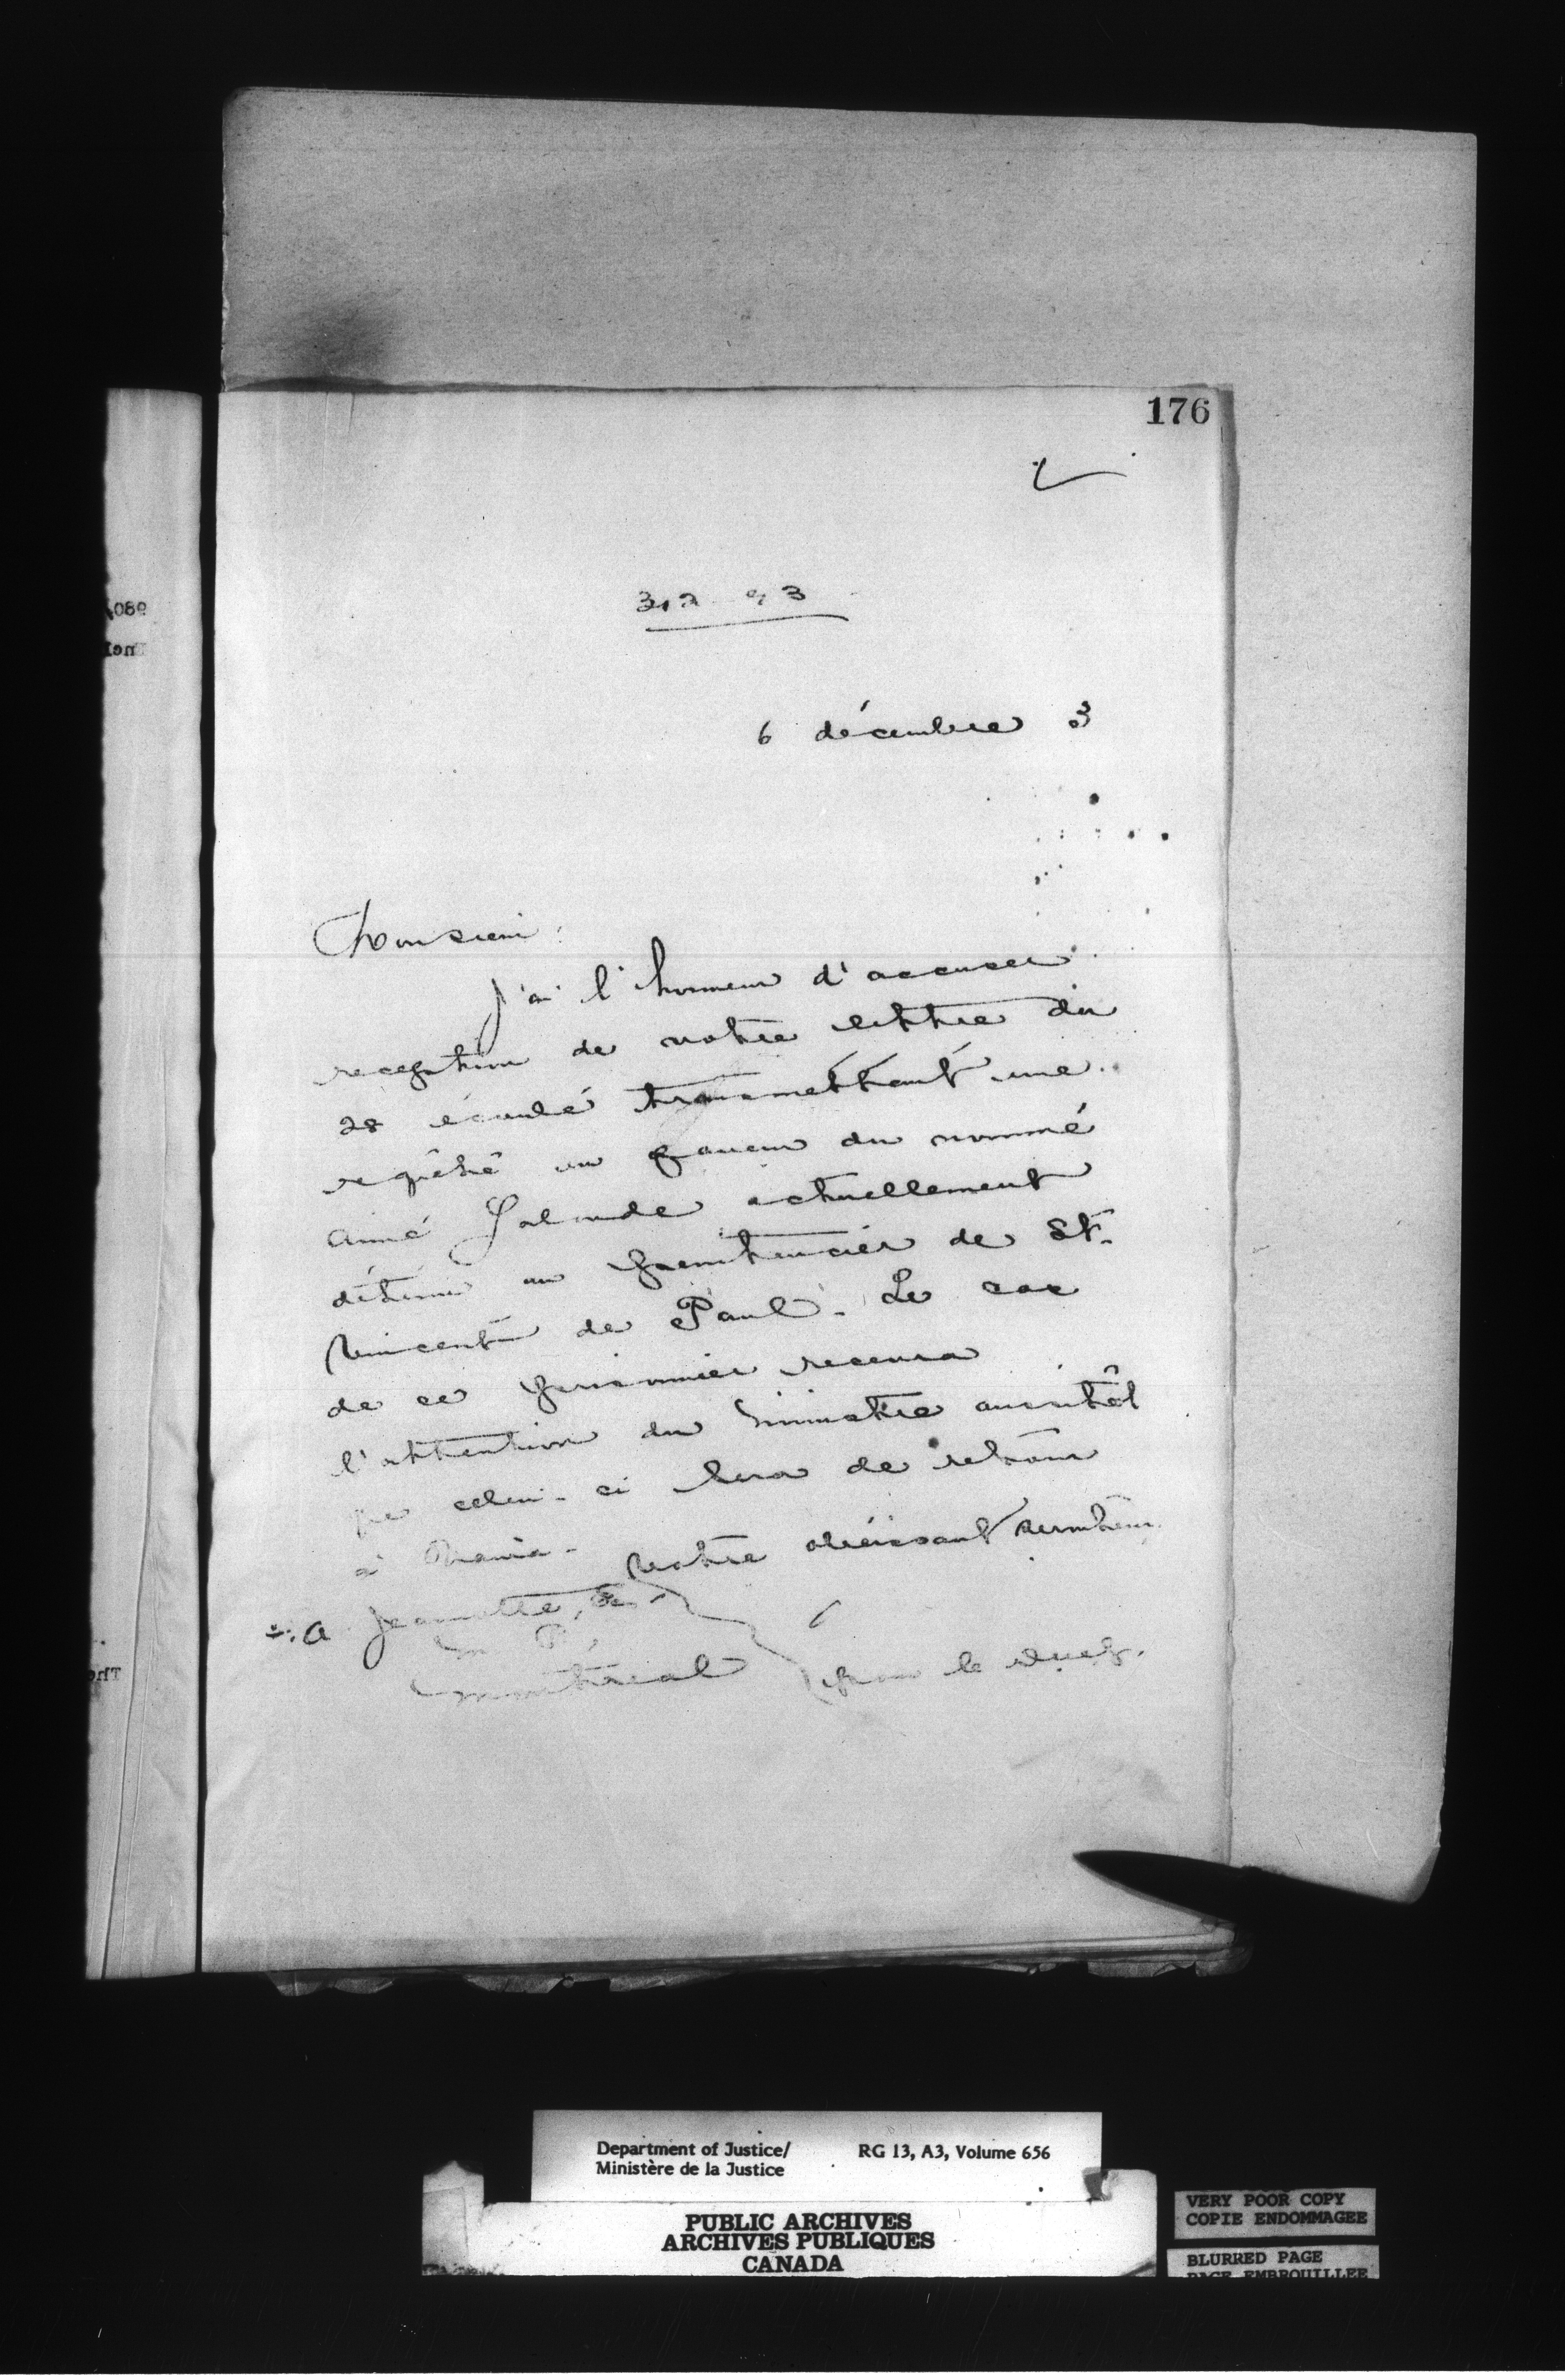 176
312 93
6 décembre 3
Monsieur:
J'ai l'honneur d'accuser
reception de votre lettre du
28 écoulé transmettant une
requête en faveur du nommé
Aimé Lalonde actuellement
détenu au penitencier de St.
Vincent de Paul. Le cas
de ce prisonnier recevra
l'attention du ministre aussitôt
que celui-ci sera de retour
à
Votre obéissant serviteur
A Jeannotte,
M P,
Montréal
pour le
Department of Justice/
Ministère de la Justice
RG 13, A3, Volume 656
PUBLIC ARCHIVES
ARCHIVES PUBLIQUES
CANADA
VERY POOR COPY
COPIE ENDOMMAGEE
BLURRED PAGE
PAGE EMBROUILLEE